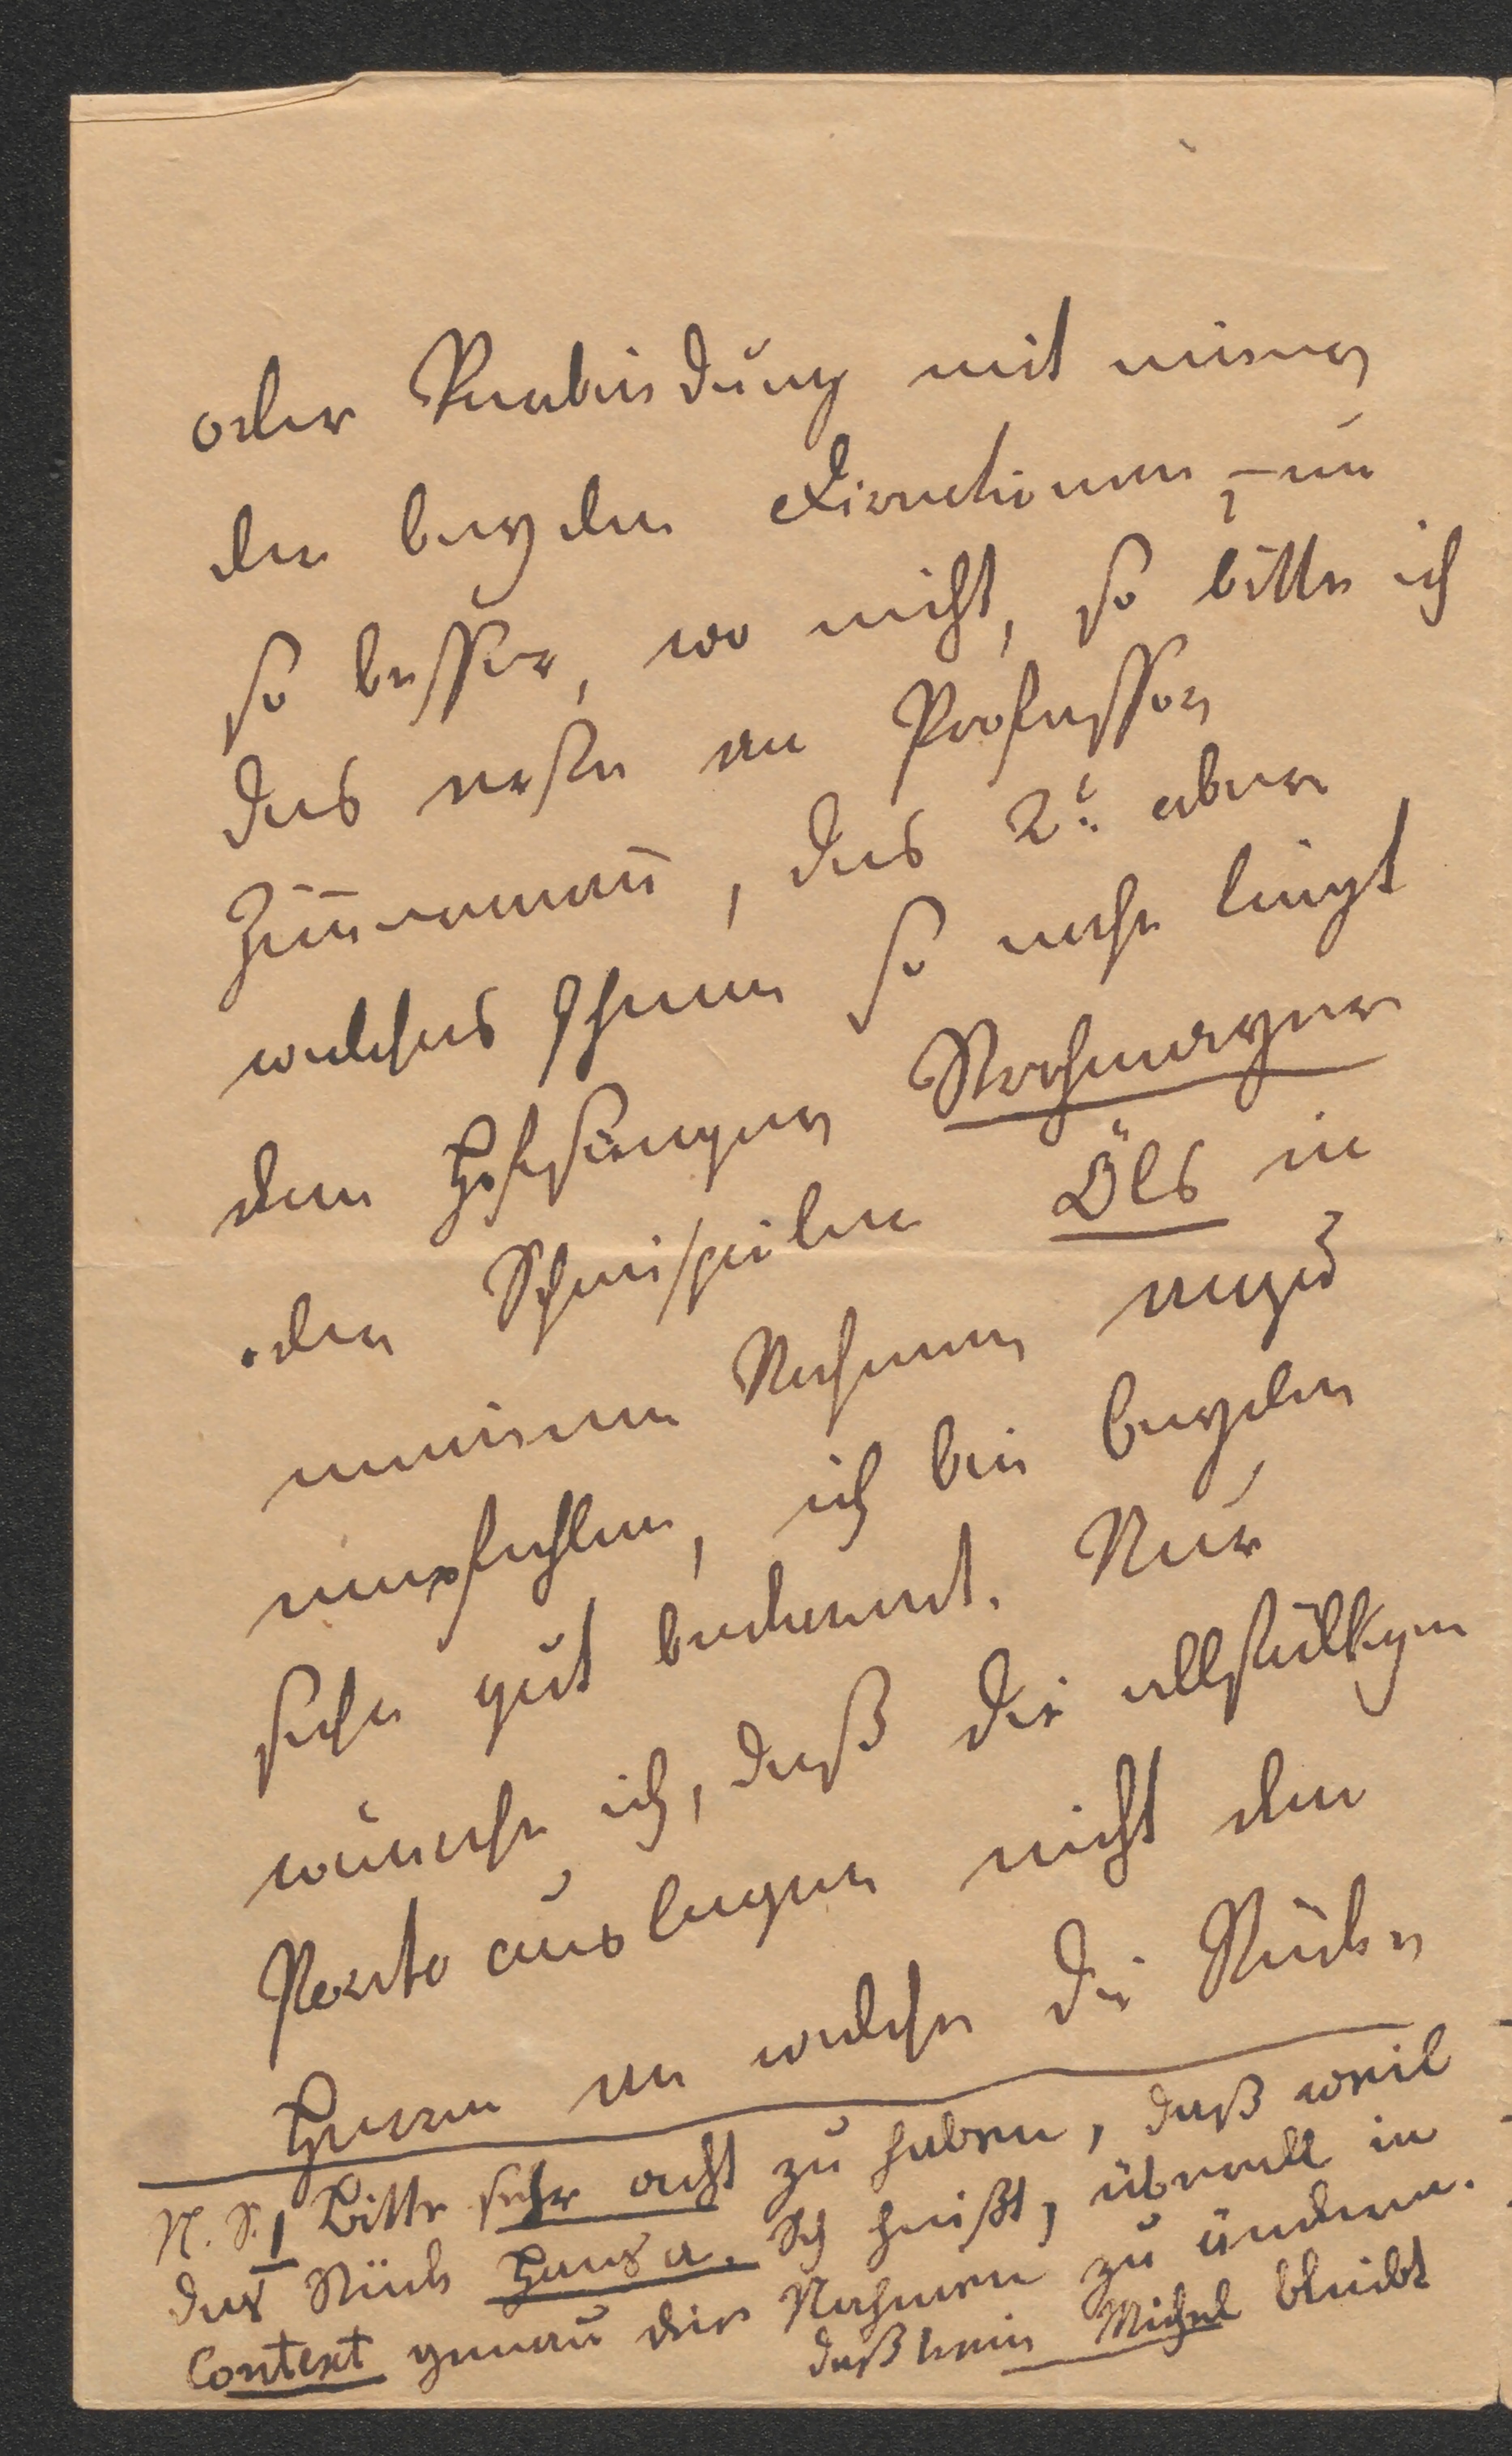 oder Verbindung mit einer
der beyden Directionen, – um
so besser, wo nicht, so bitte ich
das erste an Professor
Zim̅ermann̅, das 2te aber
welches Ihnen so nahe liegt
dem Hofsänger Strohmayer
oder Schauspieler Öls in
meinem Nahmen anzu
empfehlen, ich bin beyden
sehr gut bekannt. Nur
wünsche ich, daß die allfälligen
Porto auslagen nicht den
Herrn an welche die Stücke
N. S. Bitte sehr acht zu haben, daß weil
das Stück Hans u. heißt, überall in
Context genau der Nahmen zu ändern.
daß kein Michel bleibt